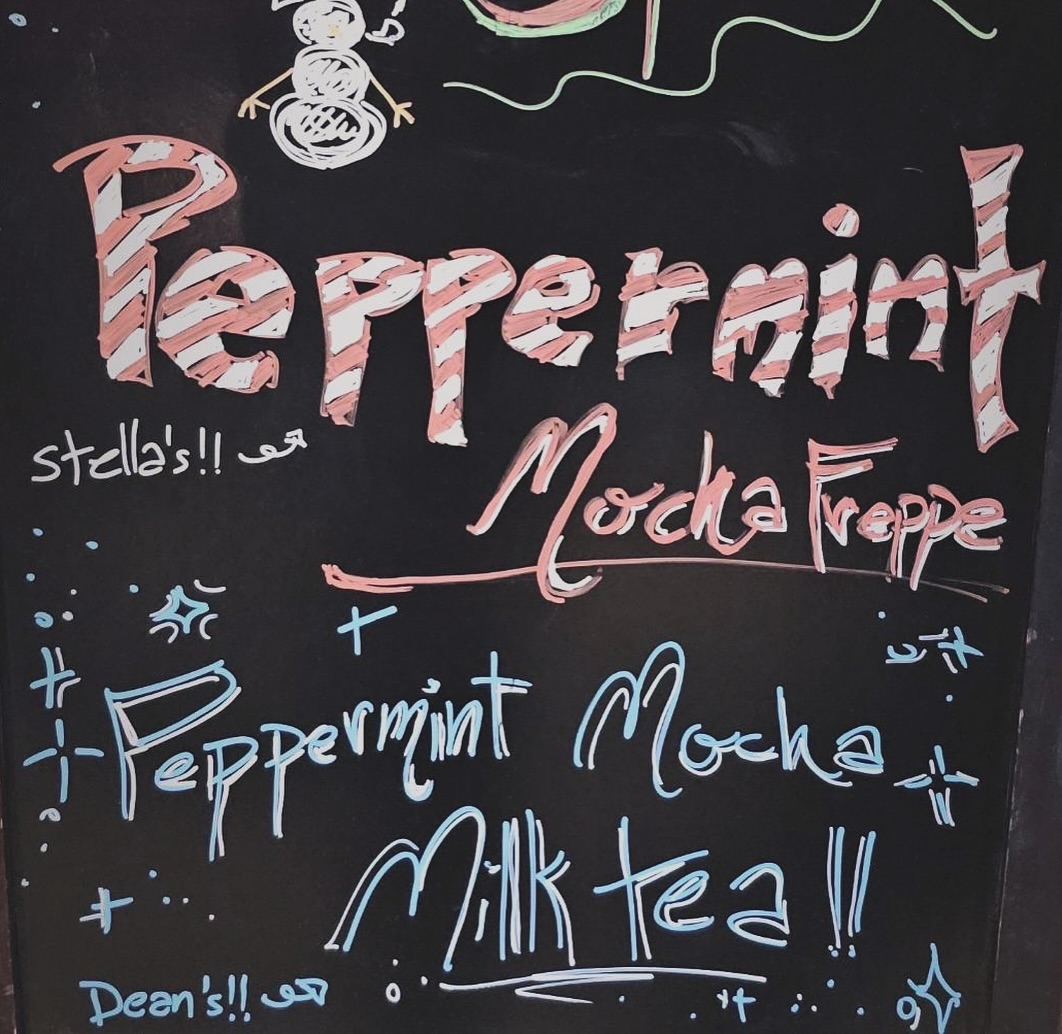 Peppermint
Stella's!!
Mocha Freppe
Peppermint Mocha
Milk tea!!
Dean's!!